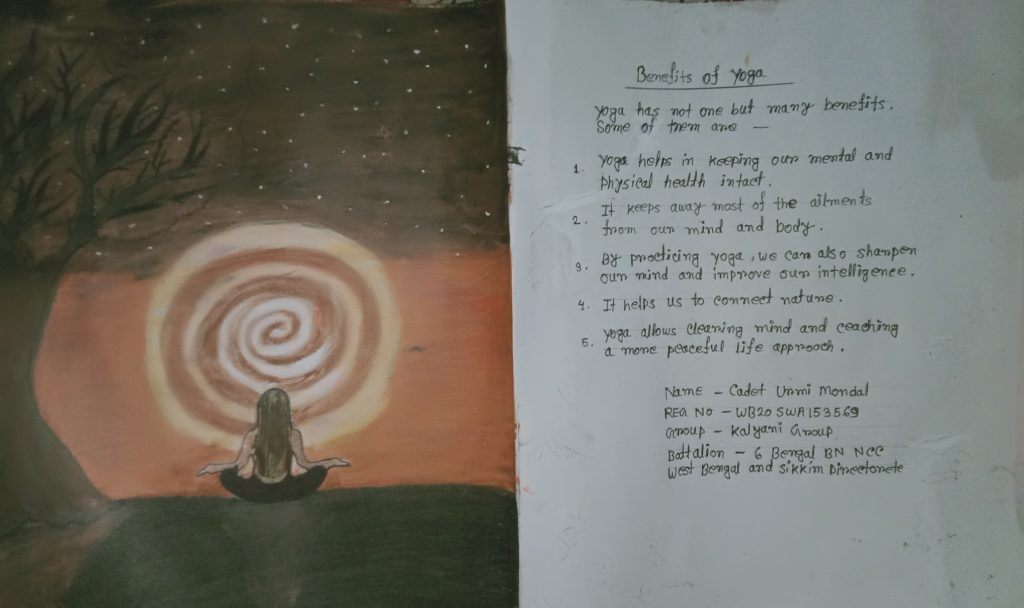 Benefits of Yoga
Yoga has not one but many benefits.
Some of them are —
1. Yoga helps in keeping our mental and
physical health intact.
2. It keeps away most of the ailments
from our mind and body.
3. By practicing yoga, we can also sharpen
our mind and improve our intelligence.
4. It helps us to connect nature.
5. Yoga allows clearing mind and ceaching
a more peaceful life approach.
Name - Cadet Urmi Mondal
REG NO - WB20 SWA153569
Group - Kalyani Group
Battalion - 6 Bengal BN NCC
West Bengal and Sikkim Directorete